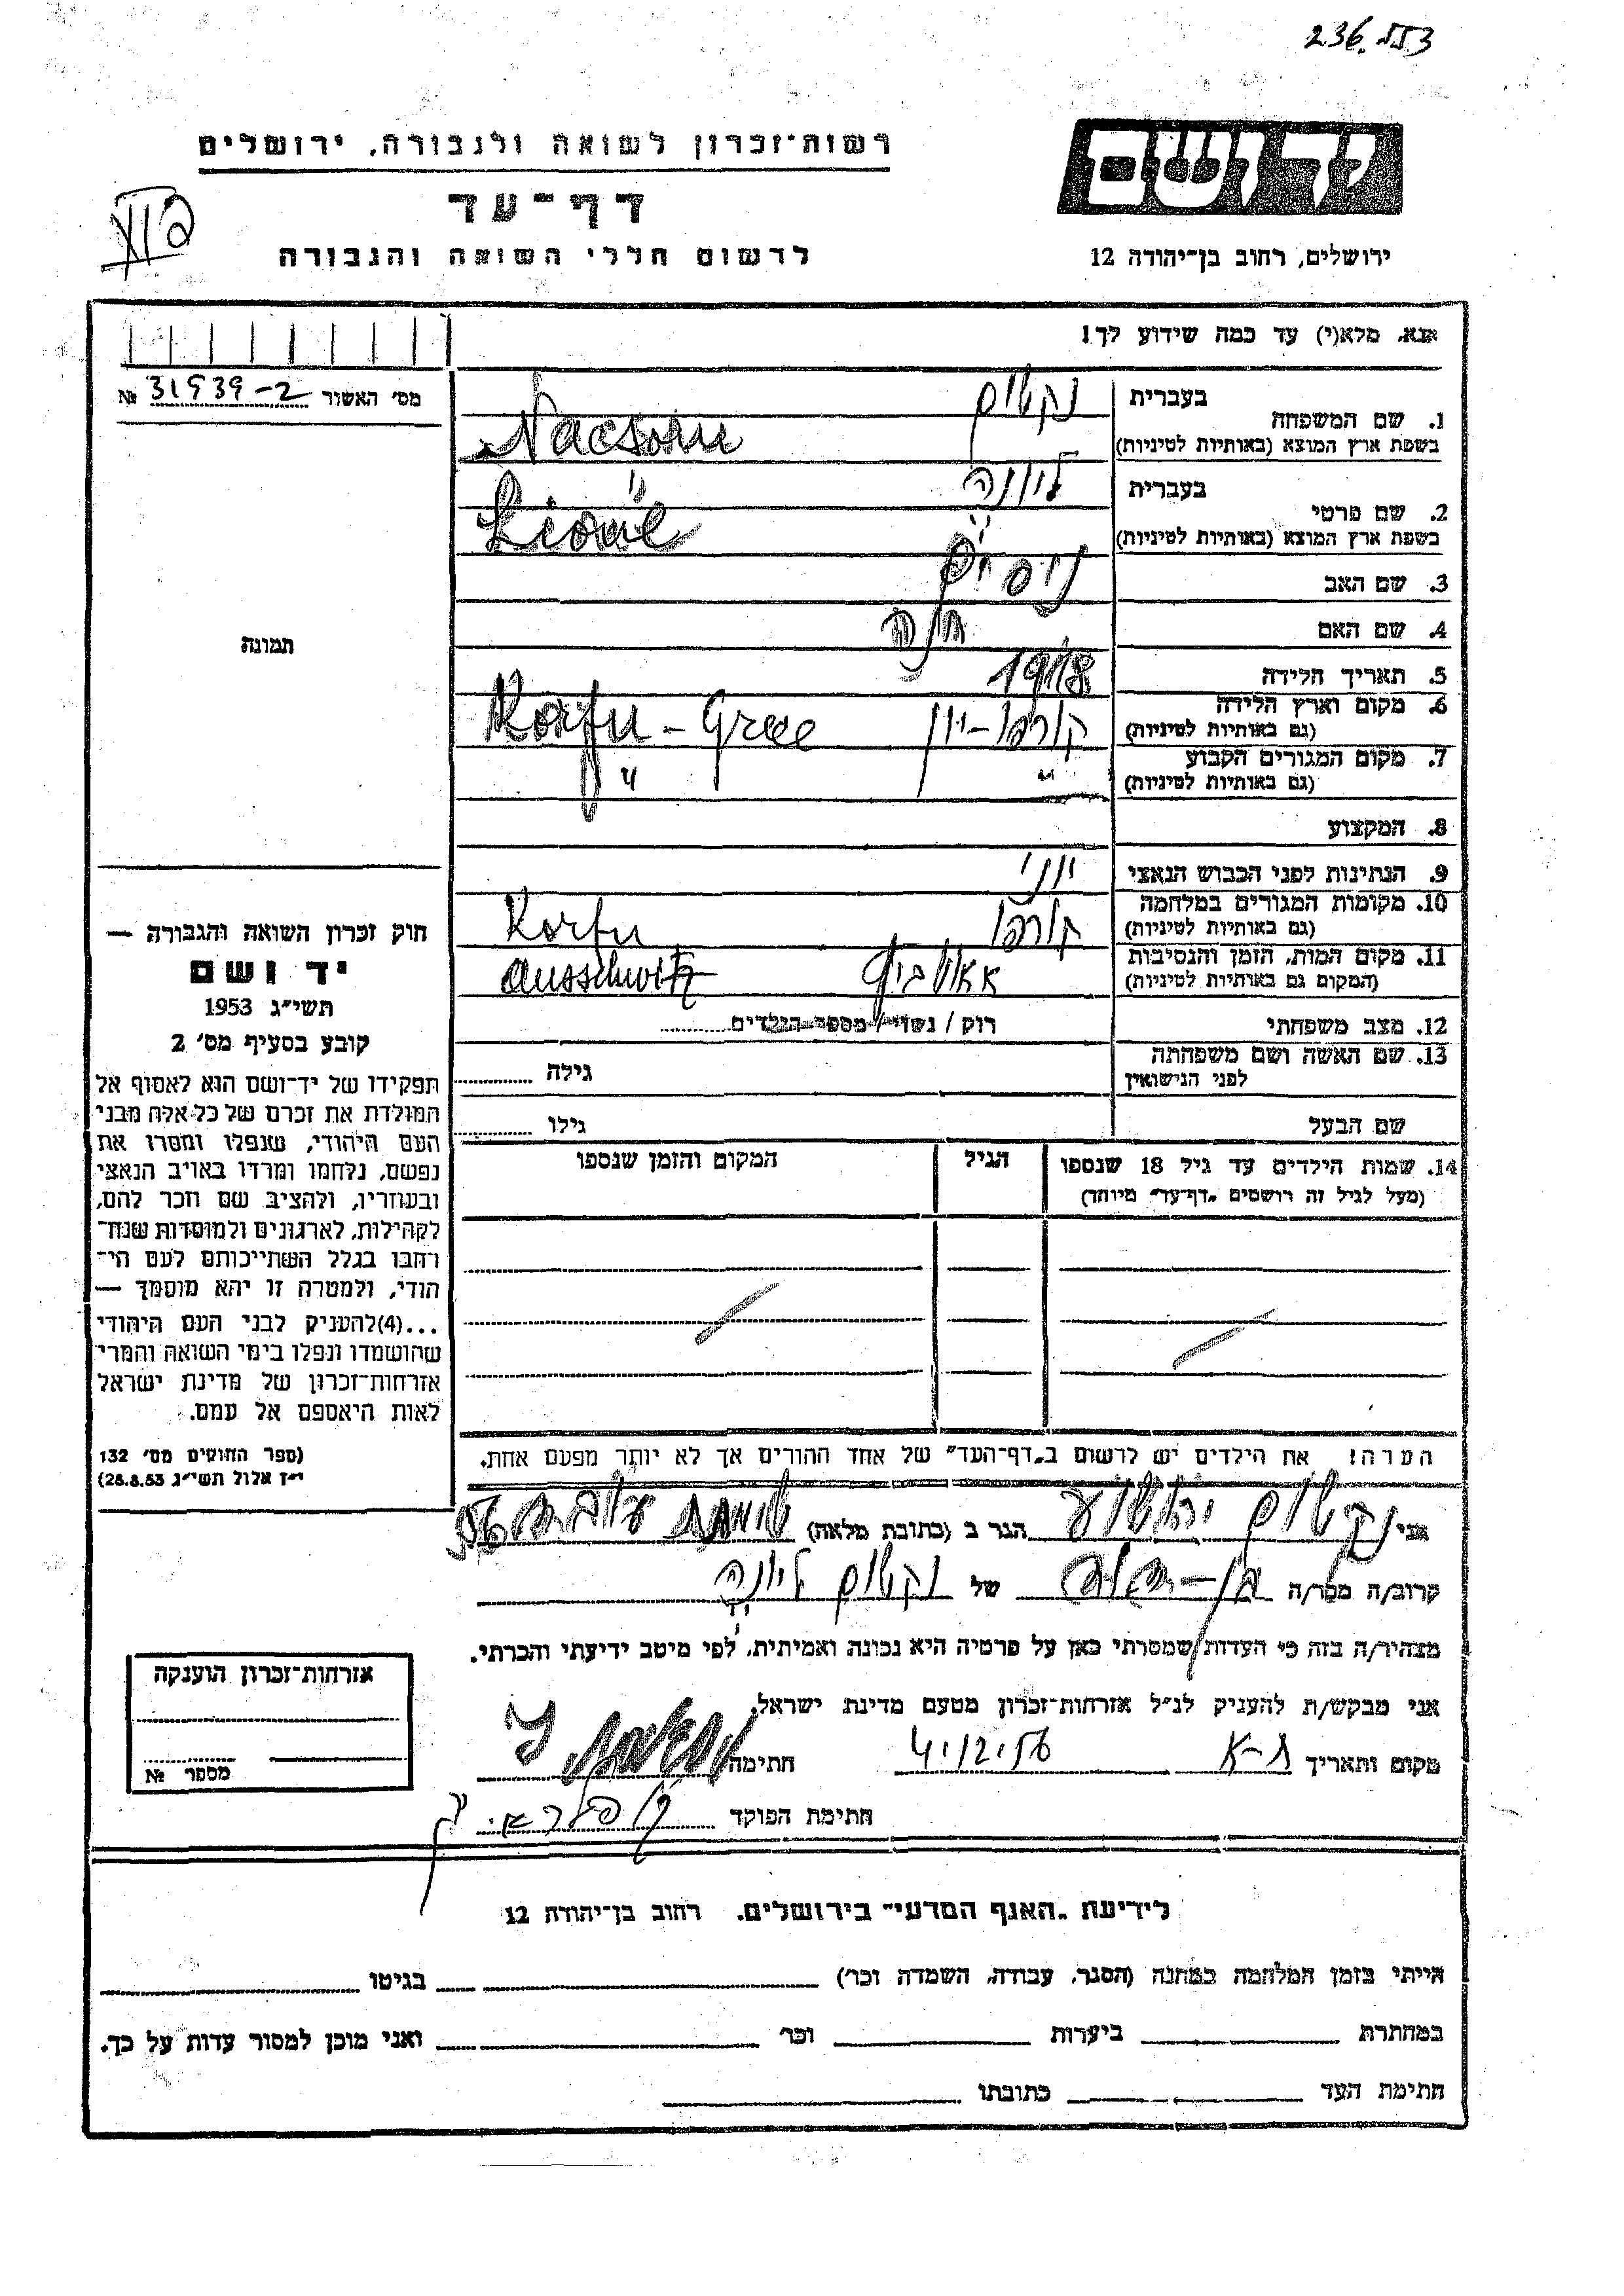 236.553
רשות-זכרון לשואה ולגבורה, ירושלים
יד ושם
דף-עד
לרשום חללי השואה והגבורה
ירושלים, רחוב בן-יהודה 12
אנא, מלא(י) עד כמה שידוע לך!
מס' האשור № 31939-2
1. שם המשפחה בעברית נקשום
בשפת ארץ המוצא (באותיות לטיניות) Nacsom
2. שם פרטי בעברית ליונה
בשפת ארץ המוצא (באותיות לטיניות) Lione
3. שם האב ניסים
4. שם האם חנה
תמונה
5. תאריך הלידה 1918
6. מקום וארץ הלידה קורפו-יון Korfu - Gree
(גם באותיות לטיניות)
7. מקום המגורים הקבוע " "
(גם באותיות לטיניות)
8. המקצוע
9. הנתינות לפני הכבוש הנאצי יוני
10. מקומות המגורים במלחמה קורפו Korfu
(גם באותיות לטיניות)
11. מקום המות, הזמן והנסיבות אאושביץ Ausschwitz
(המקום גם באותיות לטיניות)
12. מצב משפחתי רוק / נשוי / מספר הילדים
13. שם האשה ושם משפחתה גילה
לפני הנישואין
שם הבעל גילו
14. שמות הילדים עד גיל 18 שנספו הגיל המקום והזמן שנספו
(מעל לגיל זה רושמים "דף-עד" מיוחד)
חוק זכרון השואה והגבורה —
יד ושם
תשי"ג 1953
קובע בסעיף מס' 2
תפקידו של יד-ושם הוא לאסוף אל
המולדת את זכרם של כל אלה מבני
העם היהודי, שנפלו ומסרו את
נפשם, נלחמו ומרדו באויב הנאצי
ובעוזריו, ולהציב שם וזכר להם,
לקהילות, לארגונים ולמוסדות שנח-
רהבו בגלל השתייכותם לעם הי-
הודי, ולמטרה זו יהא מוסמך —
...(4)להעניק לבני העם היהודי
שהושמדו ונפלו בימי השואה והמרי
אזרחות-זכרון של מדינת ישראל
לאות היאספם אל עמם.
(ספר החוקים מס' 132
י"ז אלול תשי"ג 28.8.53)
הערה! את הילדים יש לרשום ב"דף-העד" של אחד ההורים אך לא יותר מפעם אחת.
אני נקשום יהושוע הגר ב (כתובת מלאה) שכונת
קרוב/ה מכר/ה של נקשום ליונה
מצהיר/ה בזה כי העדות שמסרתי כאן על פרטיה היא נכונה ואמיתית, לפי מיטב ידיעתי והכרתי.
אני מבקש/ת להעניק לנ"ל אזרחות-זכרון מטעם מדינת ישראל.
מקום ותאריך ת-א חתימה
חתימת הפוקד
אזרחות-זכרון הוענקה
מספר №
לידיעת "האגף המדעי" בירושלים, רחוב בן-יהודה 12
הייתי בזמן המלחמה במחנה (הסגר, עבודה, השמדה וכו') בגיטו
במחתרת ביערות וכו' ואני מוכן למסור עדות על כך.
חתימת העד כתובתו